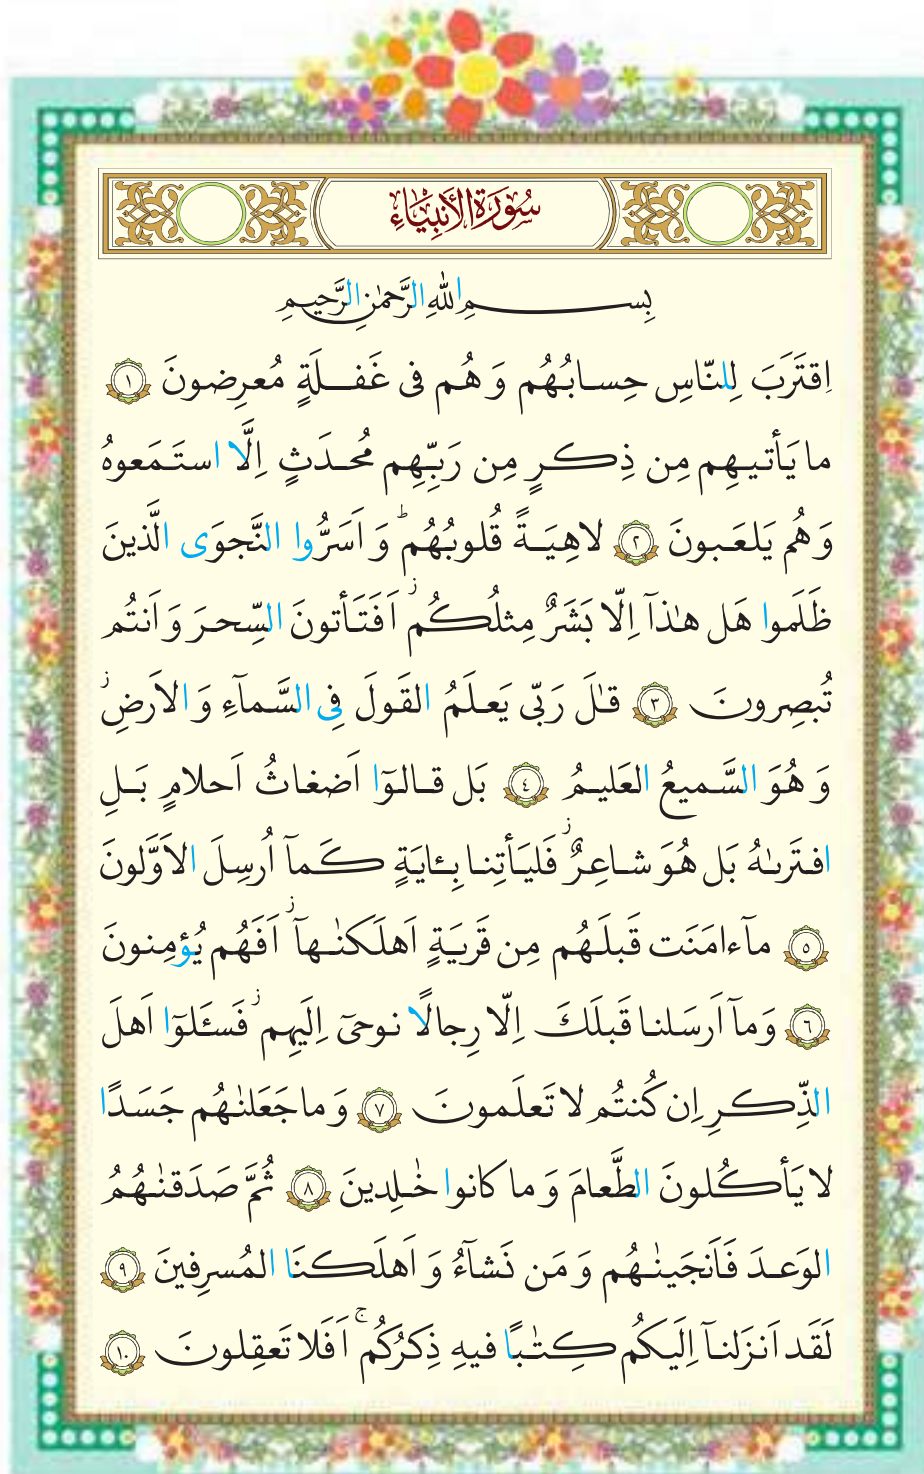 سُورَةُ الْأَنْبِيَاءِ
بِسمِ اللهِ الرَّحمٰنِ الرَّحيمِ
اِقتَرَبَ لِلنّاسِ حِسابُهُم وَ هُم فی غَفلَةٍ مُعرِضونَ ١
ما يَأتيهِم مِن ذِكرٍ مِن رَبِّهِم مُحدَثٍ اِلَّا استَمَعوهُ
وَ هُم يَلعَبونَ ٢ لاهِيَةً قُلوبُهُم ؕ وَ اَسَرُّوا النَّجوَی الَّذينَ
ظَلَموا هَل هٰذآ اِلّا بَشَرٌ مِثلُكُم ؗ اَفَتَأتونَ السِّحرَ وَ اَنتُم
تُبصِرونَ ٣ قٰلَ رَبّی يَعلَمُ القَولَ فِی السَّمآءِ وَ الاَرضِ ؗ
وَ هُوَ السَّميعُ العَليمُ ٤ بَل قالوٓا اَضغاثُ اَحلامٍ بَلِ
افتَرىٰهُ بَل هُوَ شاعِرٌ ؗ فَليَأتِنا بِـٔايَةٍ كَمآ اُرسِلَ الاَوَّلونَ
٥ مآ ءامَنَت قَبلَهُم مِن قَريَةٍ اَهلَكنٰهآ ؗ اَفَهُم يُؤمِنونَ
٦ وَ مآ اَرسَلنا قَبلَكَ اِلّا رِجالًا نوحیٓ اِلَيهِم ؗ فَسـَٔلوٓا اَهلَ
الذِّكرِ اِن كُنتُم لا تَعلَمونَ ٧ وَ ما جَعَلنٰهُم جَسَدًا
لا يَأكُلونَ الطَّعامَ وَ ما كانوا خٰلِدينَ ٨ ثُمَّ صَدَقنٰهُمُ
الوَعدَ فَاَنجَينٰهُم وَ مَن نَشآءُ وَ اَهلَكنَا المُسرِفينَ ٩
لَقَد اَنزَلنآ اِلَيكُم كِتٰبًا فيهِ ذِكرُكُم ۚ اَفَلا تَعقِلونَ ١٠